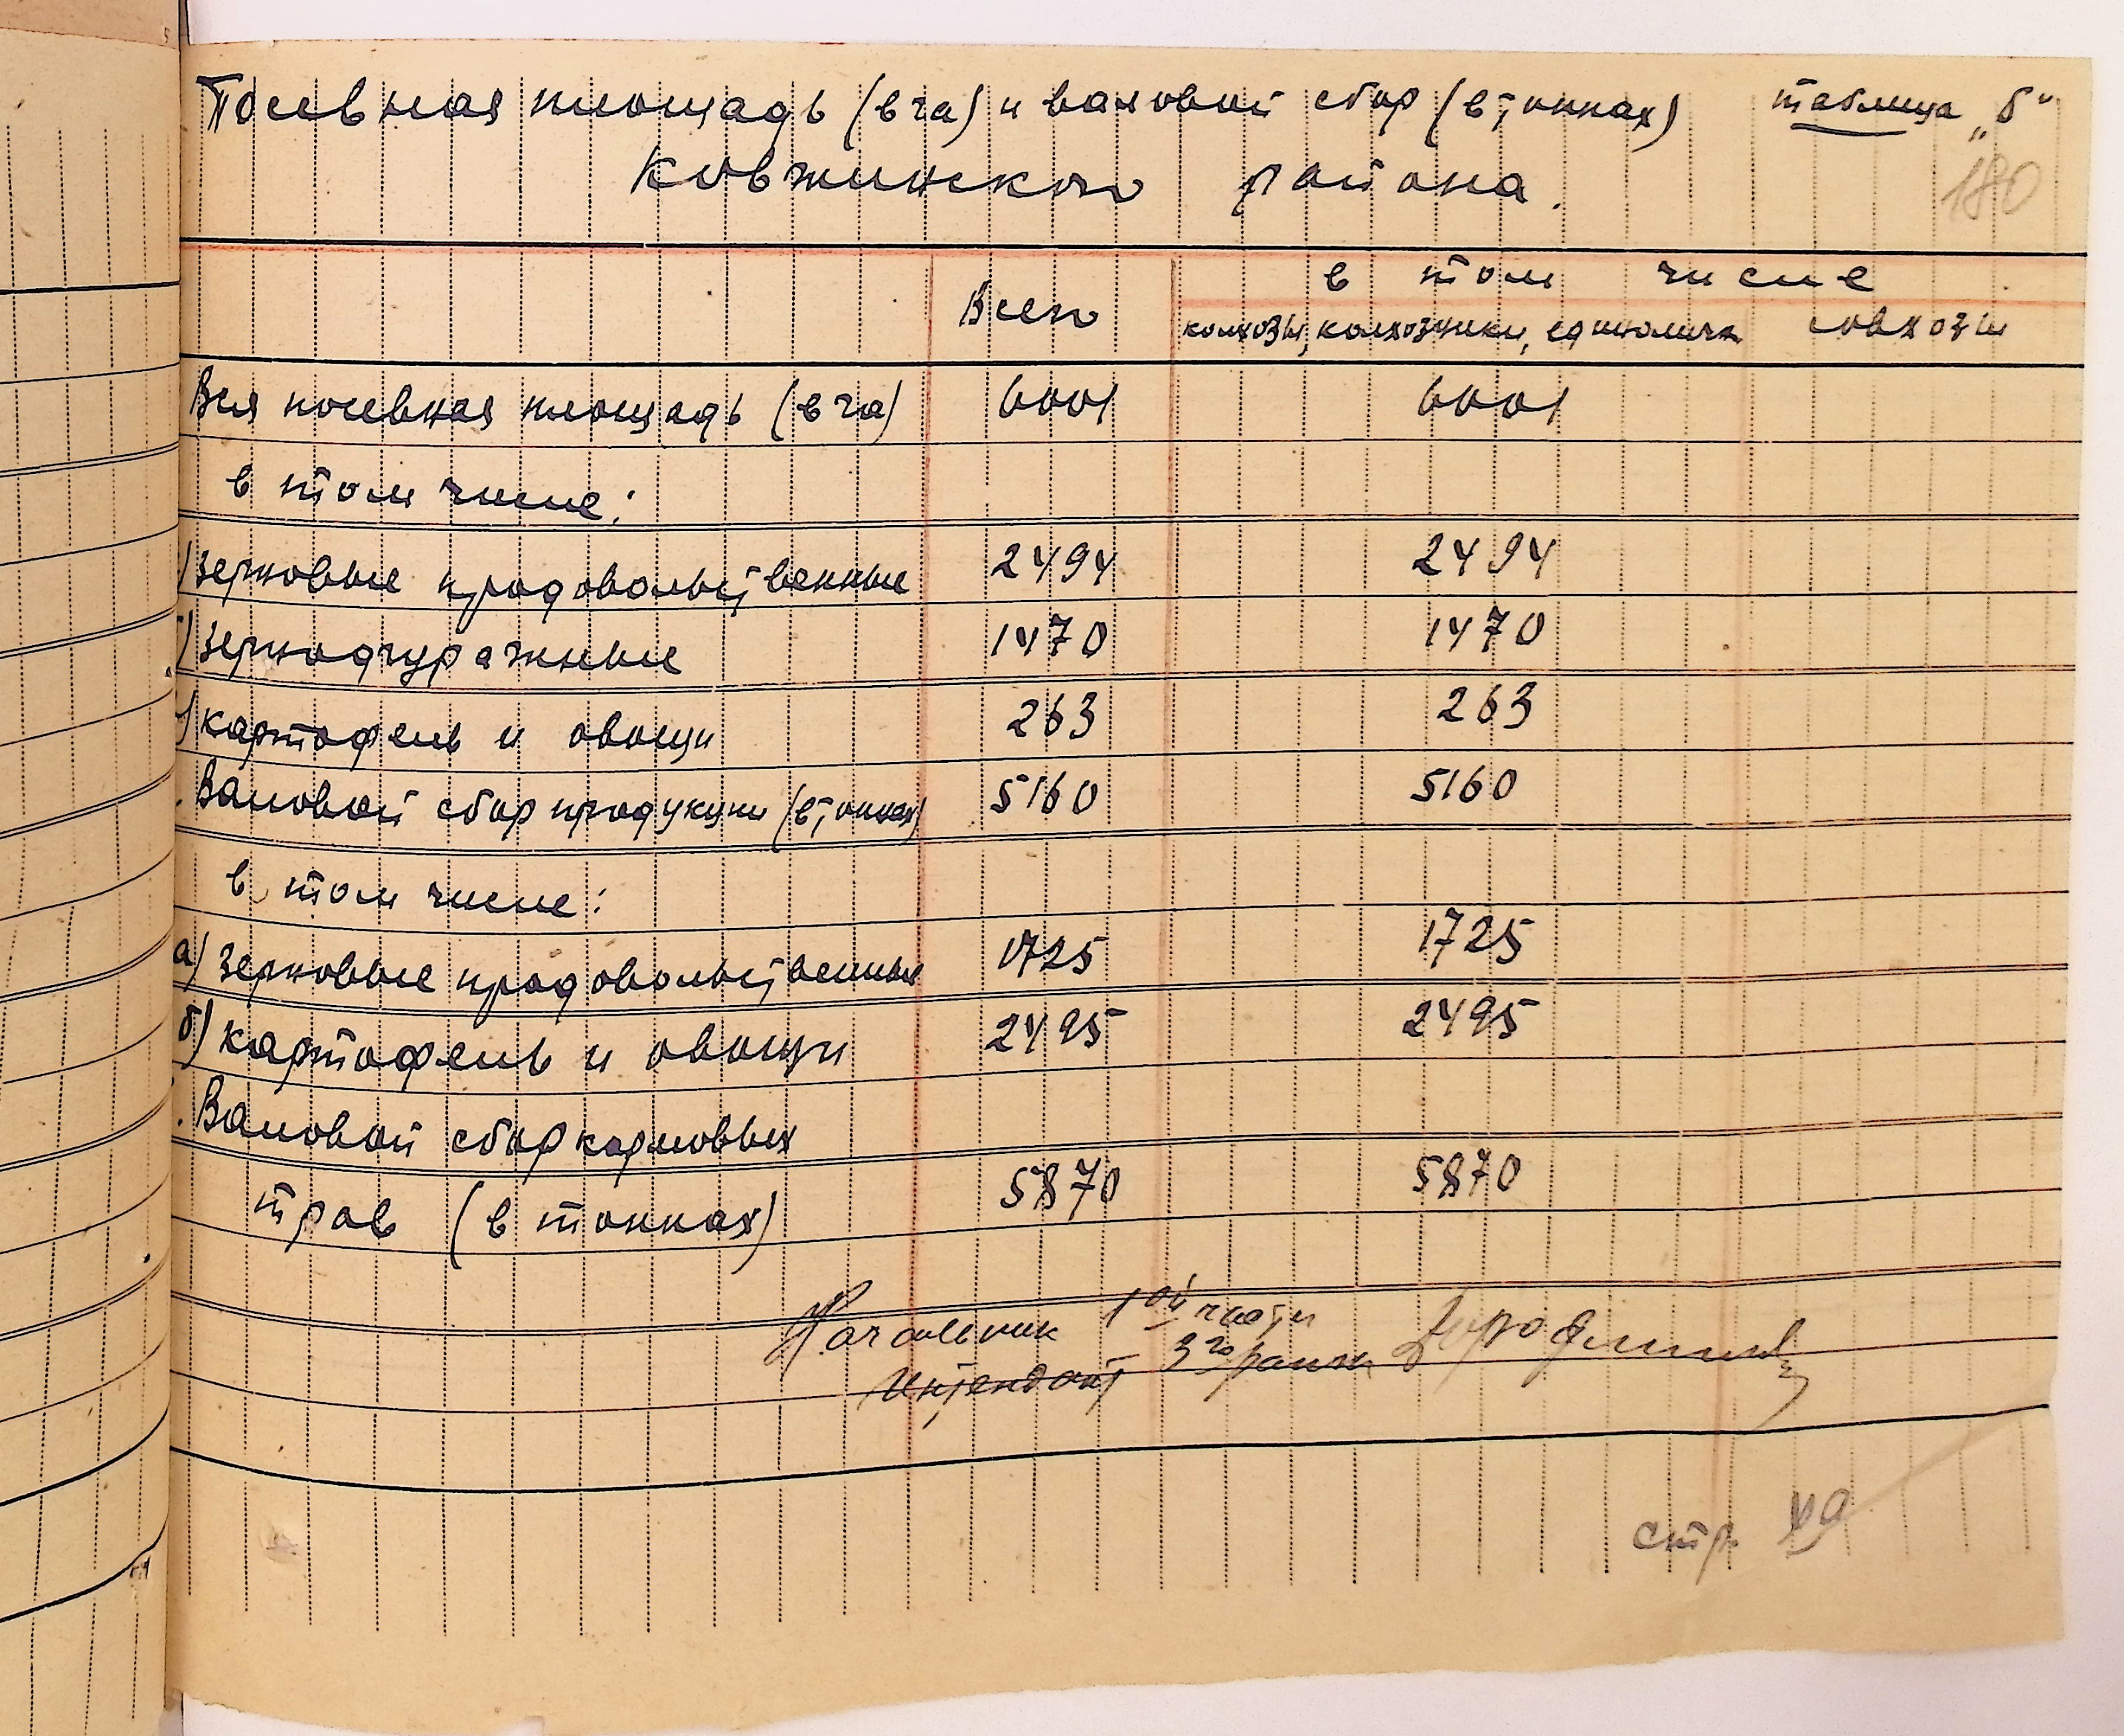 Посевная площадь (в га) и валовой сбор (в тоннах) таблица „б“
Ковжинского района.
180
Всего
в том числе
колхозы, колхозники, единоличн совхозы
Вся посевная площадь (в га) 6001 6001
в том числе:
) зерновые продовольственные 2494 2494
) зернофуражные 1470 1470
) картофель и овощи 263 263
. Валовой сбор продукции (в тоннах) 5160 5160
в том числе:
а) зерновые продовольственных 1725 1725
б) картофель и овощи 2495 2495
. Валовой сбор кормовых
трав (в тоннах) 5870 5870
Начальник 1ой части
Интендант 3го ранга
стр.